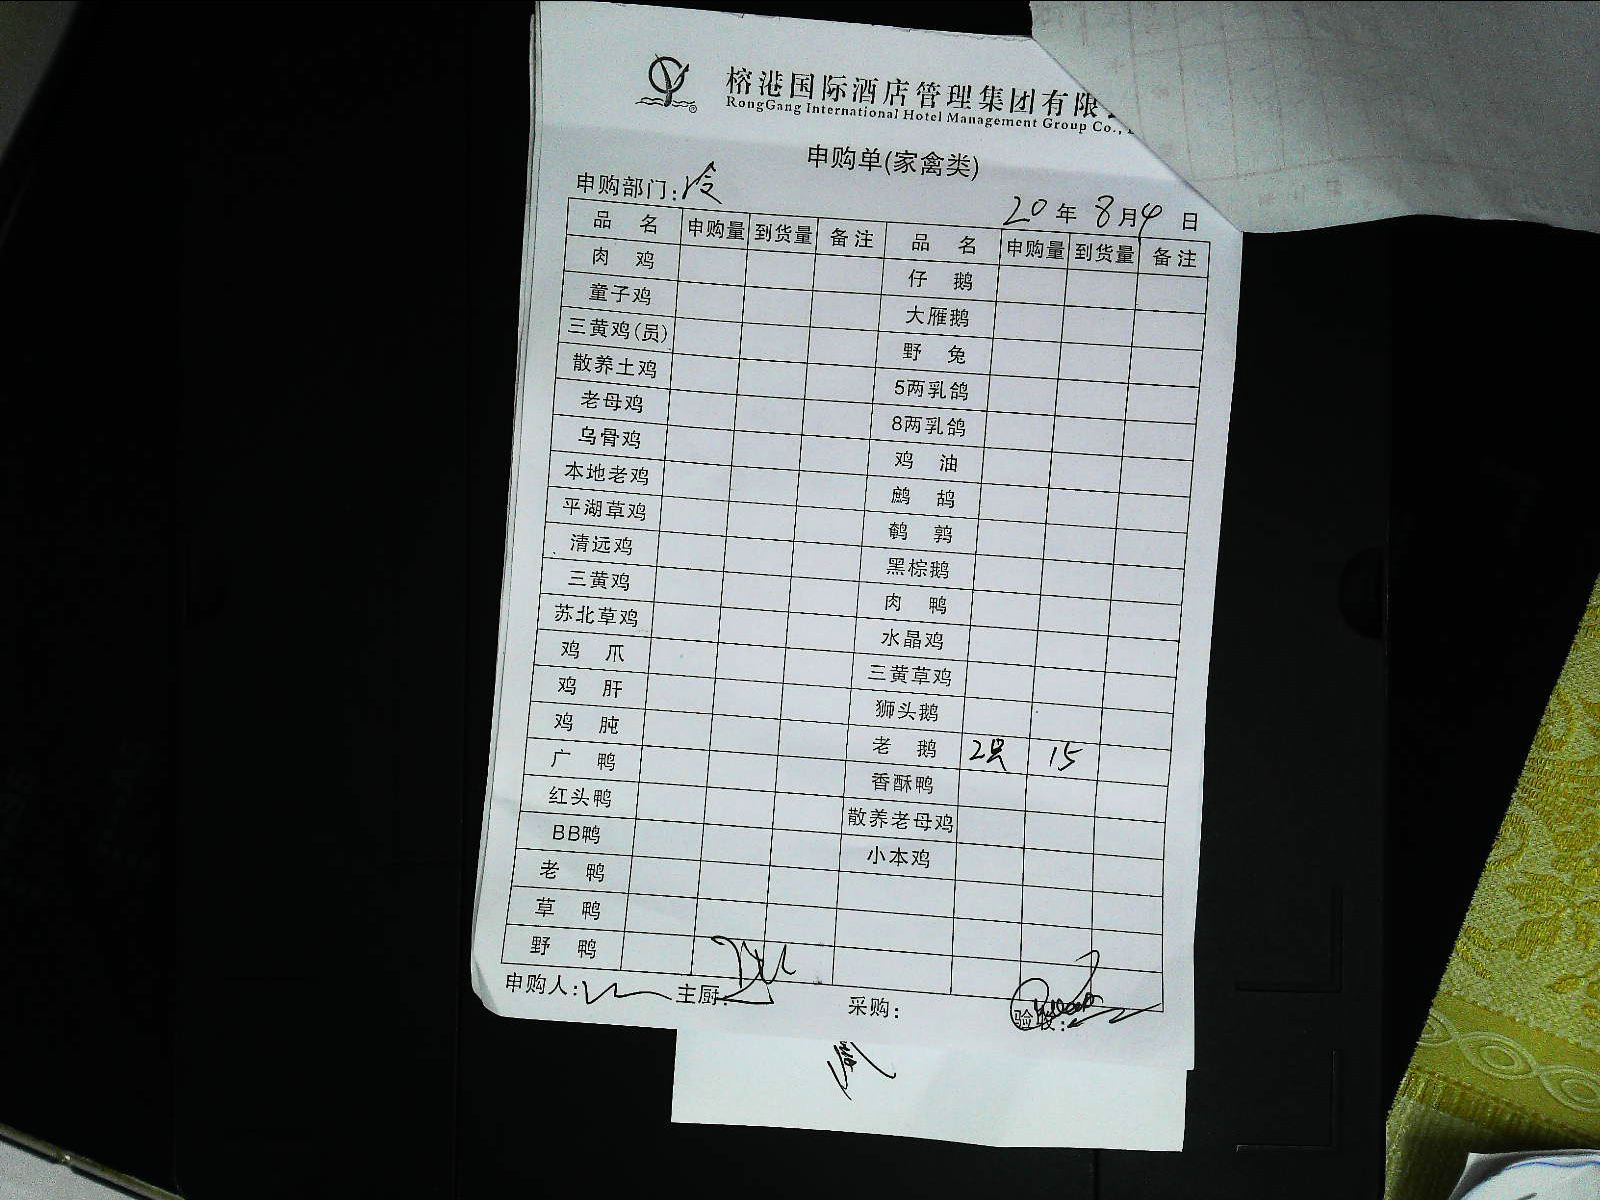 榕港国际酒店管理集团有限
RongGang International Hotel Management Group Co.,
申购单(家禽类)
申购部门:冷
20年8月4日
品名 申购量 到货量 备注 品名 申购量 到货量 备注
肉鸡 仔鹅
童子鸡 大雁鹅
三黄鸡(员) 野兔
散养土鸡 5两乳鸽
老母鸡 8两乳鸽
乌骨鸡 鸡油
本地老鸡 鹧鸪
平湖草鸡 鹌鹑
清远鸡 黑棕鹅
三黄鸡 肉鸭
苏北草鸡 水晶鸡
鸡爪 三黄草鸡
鸡肝 狮头鹅
鸡肫 老鹅 2只 15
广鸭 香酥鸭
红头鸭 散养老母鸡
BB鸭 小本鸡
老鸭
草鸭
野鸭
申购人: 主厨: 采购: 验收: